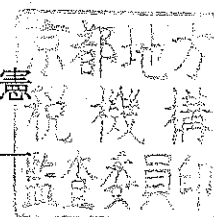 京都地方
憲
税機構
一
監査委員印